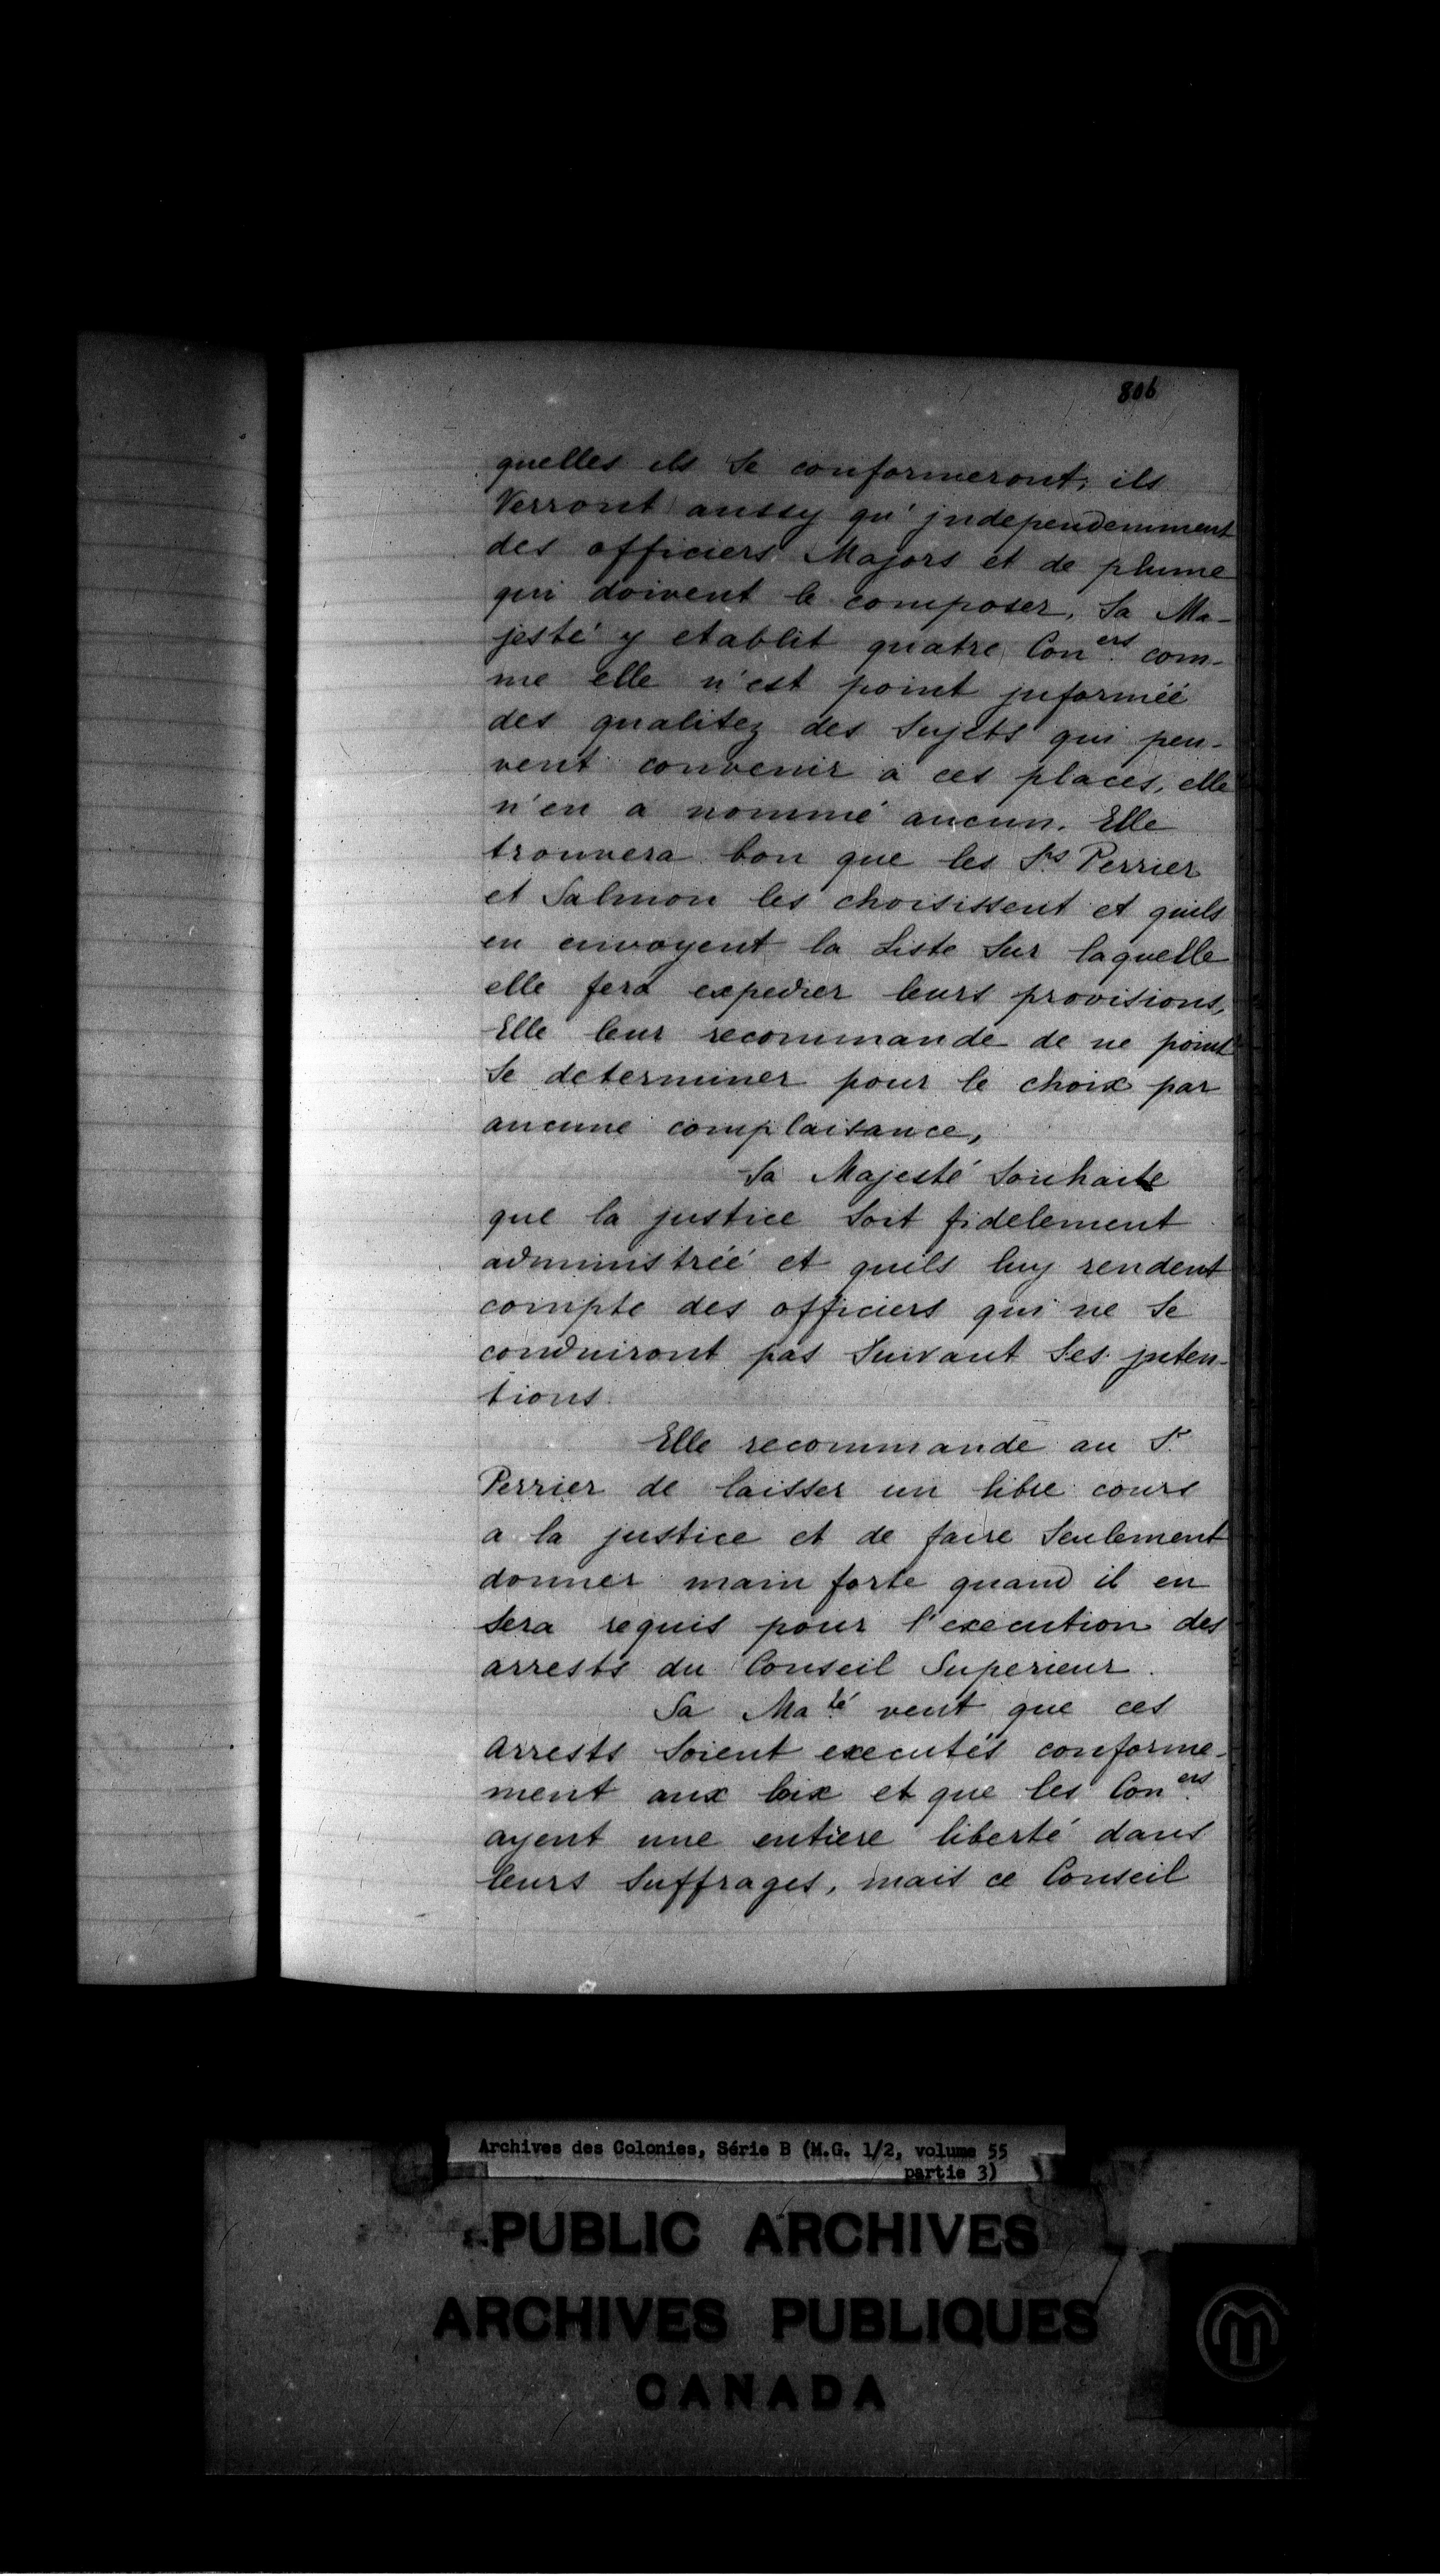 806
quelles ils se conformeront, ils
Verront aussy qu'jndependemment
des officiers Majors et de plume
qui doivent le composer, Sa Ma-
jesté y etablit quatre Con.ers com-
me elle n'est point jnformée
des qualitez des Sujets qui peu-
vent convenir a ces places, elle
n'en a nommé aucun. Elle
trouvera bon que les S.rs Perrier
et Salmon les choisissent et quils
en envoyent la Liste sur laquelle
elle fera expedier leurs provisions,
Elle leur recommande de ne point
se determiner pour le choix par
aucune complaisance,
Sa Majesté souhaite
que la justice soit fidelement
administrée et quils luy rendent
compte des officiers qui ne se
conduiront pas suivant ses jnten-
tions.
Elle recommande au S.r
Perrier de laisser un libre cours
a la justice et de faire seulement
donner main forte quand il en
sera requis pour l'execution des
arrests du Conseil Superieur.
Sa Ma.té veut que ces
arrests soient executés conforme-
ment aux loix et que les Con.ers
ayent une entiere liberté dans
leurs suffrages, mais ce Conseil
Archives des Colonies, Série B (M.G. 1/2, volume 55
partie 3)
PUBLIC ARCHIVES
ARCHIVES PUBLIQUES
CANADA